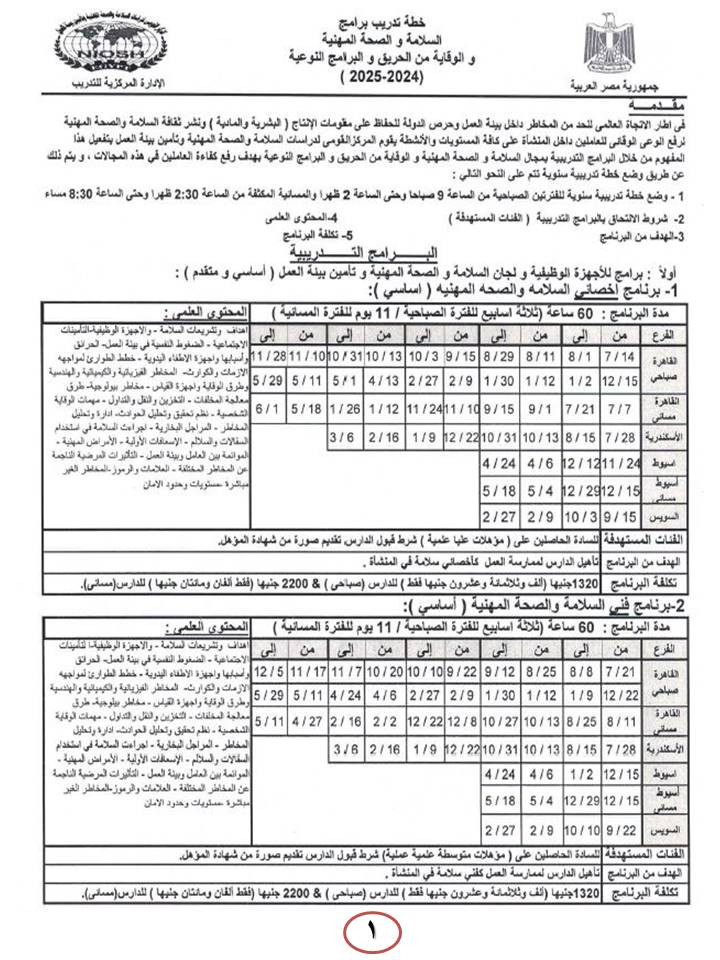 خطة تدريب برامج
السلامة و الصحة المهنية
و الوقاية من الحريق و البرامج النوعية
(2025-2024 )
جمهورية مصر العربية
NIOSH
الادارة المركزية للتدريب
مقدمه
فى اطار الاتجاة العالمى للحد من المخاطر داخل بيئة العمل وحرص الدولة للحفاظ على مقومات الإنتاج ( البشرية والمادية ) ونشر ثقافة السلامة والصحة المهنية
لرفع الوعى الوقائى للعاملين داخل المنشأة على كافة المستويات والأنشطة يقوم المركز القومى لدراسات السلامة والصحة المهنية وتأمين بيئة العمل بتفعيل هذا
المفهوم من خلال البرامج التدريبية بمجال السلامة و الصحة المهنية و الوقاية من الحريق و البرامج النوعية بهدف رفع كفاءة العاملين في هذه المجالات ، و يتم ذلك
عن طريق وضع خطة تدريبية سنوية تتم على النحو التالي :
1 - وضع خطة تدريبية سنوية للفترتين الصباحية من الساعة 9 صباحا وحتى الساعة 2 ظهرا والمسانية المكثفة من الساعة 2:30 ظهرا وحتى الساعة 8:30 مساء
2- شروط الالتحاق بالبرامج التدريبية ( الفئات المستهدفة ) 4-المحتوى العلمى
3-الهدف من البرنامج 5- تكلفة البرنامج
البـــرامج التـــدريبية
أولاً : برامج للأجهزة الوظيفية و لجان السلامة و الصحة المهنية و تأمين بيئة العمل ( أساسي و متقدم ) :
1- برنامج أخصائي السلامه والصحه المهنيه ( اساسي ):
مدة البرنامج : 60 ساعة (ثلاثة اسابيع للفترة الصباحية / 11 يوم للفترة المسائية ) المحتوى العلمى :
الفرع من إلى من إلى من إلى من إلى من إلى
القاهرة صباحي 7/14 8/1 8/11 8/29 9/15 10/3 10/13 10/31 11/10 11/28
12/15 1/2 1/12 1/30 2/9 2/27 4/13 5/1 5/11 5/29
القاهرة مسائى 7/7 7/21 9/1 9/15 11/10 11/24 1/12 1/26 5/18 6/1
الأسكندرية 7/28 8/15 10/13 10/31 12/22 1/9 2/16 3/6
اسيوط 11/24 12/12 4/6 4/24
أسيوط مسائى 12/15 12/29 5/4 5/18
السويس 9/15 10/3 2/9 2/27
اهداف وتشريعات السلامة - والاجهزة الوظيفية-التأمينات
الاجتماعية - الضغوط النفسية في بيئة العمل- الحرائق
وأسبابها واجهزة الاطفاء اليدوية - خطط الطوارئ لمواجهه
الازمات والكوارث- المخاطر الفيزيائية والكيميائية والهندسية
وطرق الوقاية واجهزة القياس - مخاطر بيولوجية- طرق
معالجة المخلفات - التخزين والنقل والتداول - مهمات الوقاية
الشخصية - نظم تحقيق وتحليل الحوادث- ادارة وتحليل
المخاطر - المراجل البخارية - اجراءت السلامة في استخدام
السقالات والسلالم - الإسعافات الأولية - الأمراض المهنية -
الموائمة بين العامل وبيئة العمل - التأثيرات المرضية الناجمة
عن المخاطر المختلفة - العلامات والرموز-المخاطر الغير
مباشرة -مستويات وحدود الامان
الفئات المستهدفة للسادة الحاصلين على ( مؤهلات عليا علمية ) شرط قبول الدارس تقديم صورة من شهادة المؤهل.
الهدف من البرنامج تأهيل الدارس لممارسة العمل كأخصائي سلامة في المنشأة .
تكلفة البرنامج 1320جنيها (ألف وثلاثمائة وعشرون جنيها فقط ) للدارس (صباحى ) & 2200 جنيها (فقط ألفان ومائتان جنيها ) للدارس(مسائى).
2-برنامج فني السلامة والصحة المهنية ( أساسي ):
مدة البرنامج : 60 ساعة (ثلاثة اسابيع للفترة الصباحية / 11 يوم للفترة المسائية ) المحتوى العلمى :
الفرع من إلى من إلى من إلى من إلى من إلى
القاهرة صباحي 7/21 8/8 8/25 9/12 9/22 10/10 10/20 11/7 11/17 12/5
12/22 1/9 1/12 1/30 2/9 2/27 4/6 4/24 5/11 5/29
القاهرة مسائى 8/11 8/25 10/13 10/27 12/8 12/22 2/2 2/16 4/27 5/11
الأسكندرية 7/28 8/15 10/13 10/31 12/22 1/9 2/16 3/6
اسيوط 12/15 1/2 4/6 4/24
أسيوط مسائى 12/15 12/29 5/4 5/18
السويس 9/22 10/10 2/9 2/27
اهداف وتشريعات السلامة - والاجهزة الوظيفية-ا لتأمينات
الاجتماعية - الضغوط النفسية في بيئة العمل- الحرائق
وأسبابها واجهزة الاطفاء اليدوية - خطط الطوارئ لمواجهه
الازمات والكوارث- المخاطر الفيزيائية والكيميائية والهندسية
وطرق الوقاية واجهزة القياس - مخاطر بيولوجية- طرق
معالجة المخلفات - التخزين والنقل والتداول - مهمات الوقاية
الشخصية - نظم تحقيق وتحليل الحوادث- ادارة وتحليل
المخاطر - المراجل البخارية - اجراءت السلامة في استخدام
السقالات والسلالم - الإسعافات الأولية - الأمراض المهنية -
الموائمة بين العامل وبيئة العمل - التأثيرات المرضية الناجمة
عن المخاطر المختلفة - العلامات والرموز-المخاطر الغير
مباشرة -مستويات وحدود الامان
الفئات المستهدفة للسادة الحاصلين على ( مؤهلات متوسطة علمية عملية) شرط قبول الدارس تقديم صورة من شهادة المؤهل.
الهدف من البرنامج تأهيل الدارس لممارسة العمل كفني سلامة في المنشأة .
تكلفة البرنامج 1320جنيها (ألف وثلاثمائة وعشرون جنيها فقط ) للدارس (صباحى ) & 2200 جنيها (فقط ألفان ومائتان جنيها ) للدارس(مسائى).
١